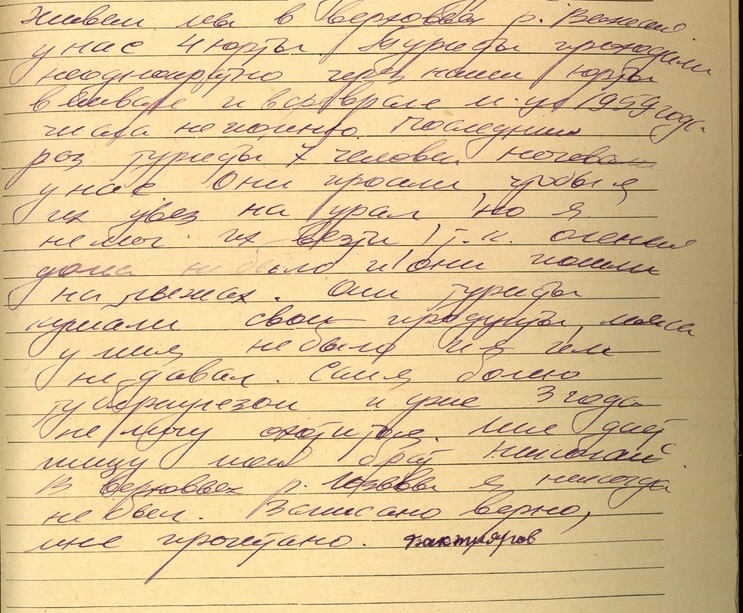 Живем мы в верховьях р. Вижай
у нас 4 юрты. Туристы проходили
неоднократно через наши юрты
в январе и в феврале м-це 1959 году
числа не помню. Последний
раз туристы 7 человек ночевали
у нас Они просили чтобы я
их увез на урал но я
не мог их везти, т.к. оленей
дома не было и они пошли
на лыжах. Они туристы
кушали свои продукты, мяса
у меня не было и я им
не давал. Сам я болею
туберкулезом и уже 3 года
не могу охотится. Мне дает
пищу мой брат Николай.
В верховьях р. Лозьвы я никогда
не был. Записано верно,
мне прочитано. Бахтияров